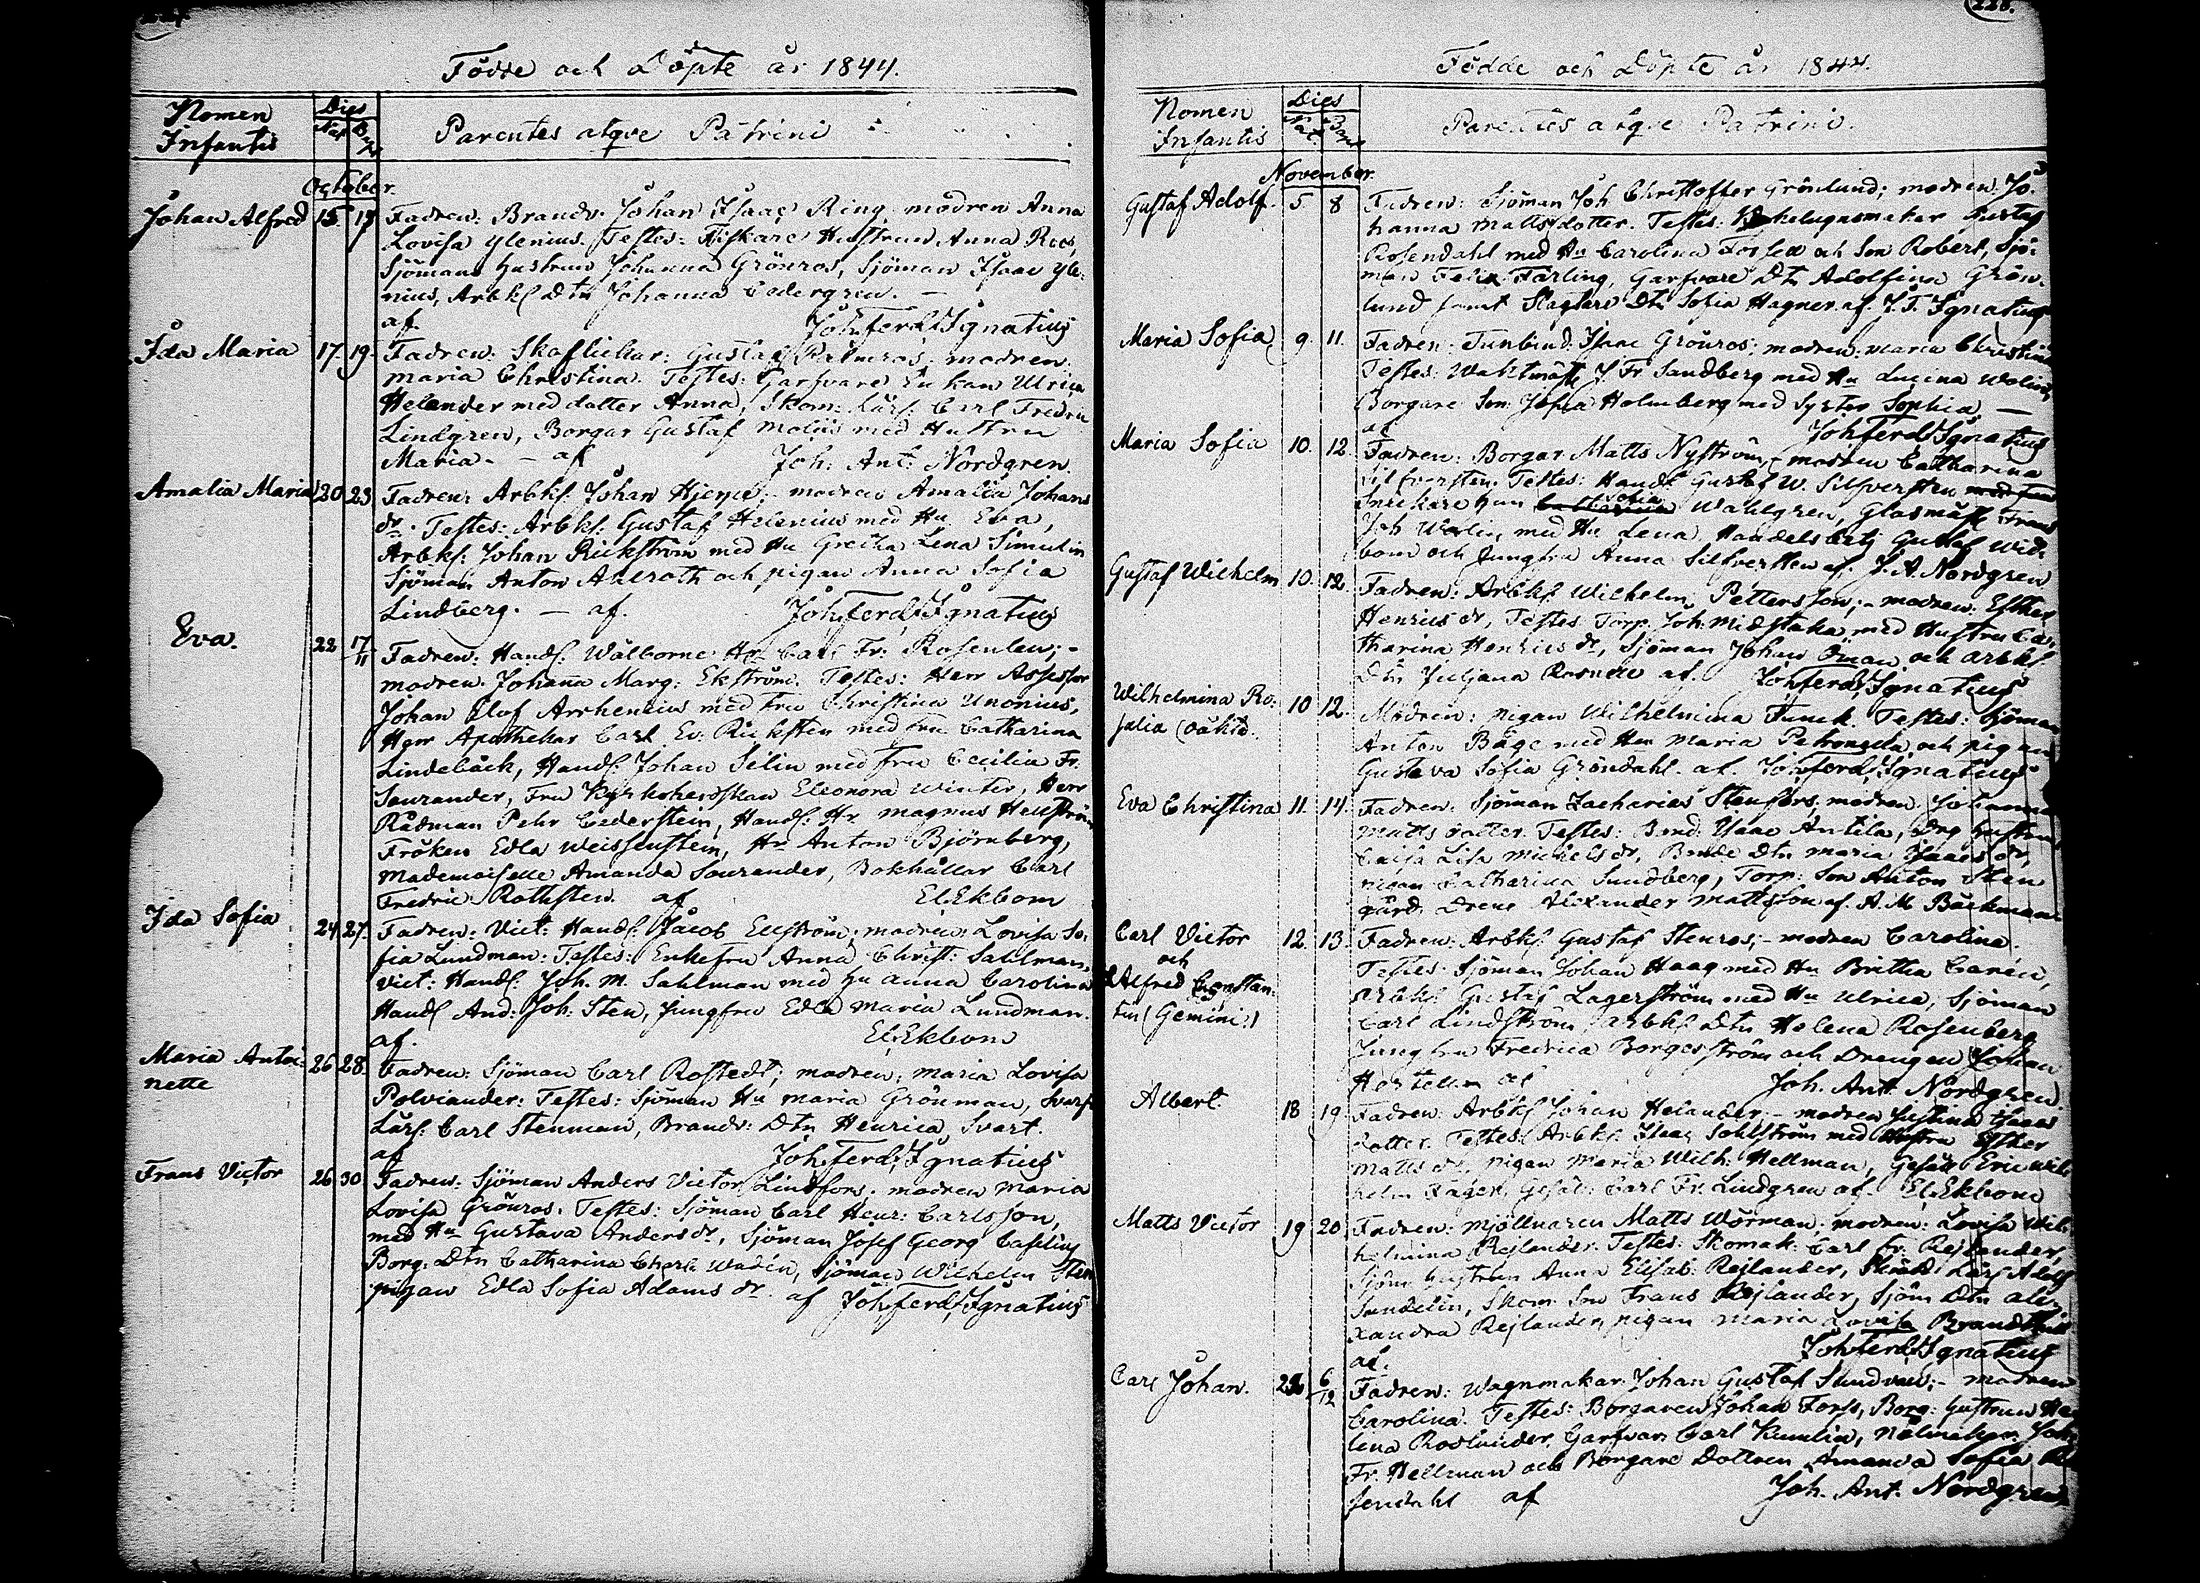 Födde och Döpte år 1844.
Nomen Infantis
Dies
Nat
Parentes atqve Patrini
October
Johan Alfred 15. 17 Fadren: Brandv. Johan Isaac Ring, modren Anna
Lovisa Ylenius. Testes: Fiskare Hustrun Anna Roos,
Sjömans hustrun Johanna Grönros, Sjöman Isaac Yle-
nius, Arbks Dtn Johanna Cedergren. —
af. Joh. Ferd. Ignatius
Ida Maria 17 19. Fadren: Gustaf Palmros; modren:
Maria Christina. Testes: Garfvare Enkan Ulrica
Helander med dotter Anna, Skom: Lärl: Carl Fredric
Lindgren, Borgar Gustaf Molin med Hustru
Maria. — af Joh: Ant: Nordgren.
Amalia Maria 20 23 Fadren: Arbks. Johan Hjerpe; modren Amalia Johans
dr. Testes: Arbks. Gustaf Helenius med Hu Eva,
Arbks. Johan Rickström med Hu Gretha Lena Simulin
Sjöman Anton Ahlroth och pigan Anna Sofia
Lindberg. — af. Joh. Ferd. Ignatius
Eva. 22 17/11 Fadren: Handl: Wälborne Hr Carl Fr: Rosenlew; -
modren Johana Marg: Ekström. Testes: Herr Assessor
Johan Elof Arrhenius med Fru Christina Unonius,
Herr Apothekar Carl Ev. Ricksten med Fru Catharina
Lindebäck, Handl: Johan Selin med Fru Cecilia Fr.
Sourander, Fru Kyrkoherdskan Eleonora Winter, Herr
Rådman Pehr Cederstein, Handl: Hr Magnus Hellström
Fröken Edla Weissenstein, Hr Anton Björnberg,
Mademoiselle Amanda Sourander, Bokhållar Carl
Fredric Rothsten af El. Ekbom
Ida Sofia 24 27. Fadren: Vict: Handl: Jacob Ekström; modren: Lovisa So-
fia Lundman: Testes: Enkefru Anna Christ: Sahlman,
Vict: Handl: Joh. M. Sahlman med Hu Anna Carolina
Handl And: Joh: Sten, Jungfru Edla Maria Lundman.
af. El. Ekbom
Maria Antoi-
nette 26 28. Fadren: Sjöman Carl Rostedt; modren: Maria Lovisa
Polviander: Testes: Sjöman Hu Maria Grönman, Svarf
Lärl: Carl Stenman, Brandv: Dtn Henrica Svart.
af Joh. Ferd. Ignatius
Frans Victor 26 30 Fadren: Sjöman Anders Victor Lindfors; modren Maria
Lovisa Grönros: Testes: Sjöman Carl Henr: Carlsson,
med Hu Gustava Anders dr, Sjöman Josef Georg Caselius
Borg: Dtn Catharina Charl: Wadén, Sjöman Wilhelm Sten
pigan Edla Sofia Adams dr. af Joh. Ferd. Ignatius
228.
Födde och Döpte år 1844.
Nomen Infantis
Dies
Nat.
Parentes atqve Patrini.
November
Gustaf Adolf. 5 8 Fadren: Sjöman Joh Christoffer Grönlund; modren: Jo-
hanna Mattsdotter. Testes: Kakelugnsmakar Gustaf
Rosendahl med Hu Carolina Forsell och Son Robert, Sjö-
man Felix Färling, Garfvare Dtn Adolfina Grön-
lund samt Slagtare Dtn Sofia Hagner. af. J. F. Ignatius
Maria Sofia 9. 11. Fadren: Tunbind: Isaac Grönros; modren: Maria Christina
Testes: Waktmäst J. Fr. Sandberg med Hu Lucina Wolin,
Borgare Son Josua Holmberg med Syster Sophia —
af Joh Ferd. Ignatius
Maria Sofia 10. 12. Fadren: Borgar Matts Nyström, modren Catharina
Silfversten. Testes: Handl Gustaf W. Silfversten
Snickare Hun Sofia Wahlgren, Glasmäst Frans
Joh Walin, med Hu Lena, Handelsbetj Gustaf Wid-
bom och Jungfru Anna Silfversten af. J. A. Nordgren
Gustaf Wilhelm 10. 12. Fadren: Arbks Wilhelm Pettersson; - modren: Esther
Henrics dr, Testes Torp. Joh: Midstaka med Hustru Ca-
tharina Henrics dr, Sjöman Johan Öman och Arbks
Dtn Juljana Rosnell af. Joh. Ferd. Ignatius
Wilhelmina Ro-
salia (oäkta. 10 12. Modren: pigan Wilhelmina Funck. Testes: Sjöman
Anton Båge med Hu Maria Petronella och pigan
Gustava Sofia Gröndahl. af. Joh. Ferd. Ignatius
Eva Christina 11. 14. Fadren: Sjöman Zacharias Stenfors; modren Johanna
Mattsdotter. Testes: Bond: Isaac Antila, Dng hustrun
Caisa Lisa Michels dr, Bonde Dtn Maria Isaacs dr,
pigan Catharina Sundberg, Torp: Son Anton Sten
gård, Dreng Alexander Mattsson af. A. M Bäckman
Carl Victor
och
Alfred Constan-
tin (Gemini:) 12. 13. Fadren: Arbks Gustaf Stenros; - modren Carolina.
Testes: Sjöman Johan Haag med Hu Britha Carén,
Arbks Gustaf Lagerström med Hu Ulrica, Sjöman
Carl Lindström, Arbks Dtn Helena Rosenberg
Jungfru Fredrica Borgström och Drengen Johan
Hertell af Joh. Ant. Nordgren.
Albert. 18 19 Fadren: Arbks Johan Helander; - modren Justina Isaacs
dotter. Testes: Arbks. Isaac Sohlström med Hustru Esther
Matts dr, pigan Maria Wilh: Hellman, Gesäll Eric Wil-
helm Fager, Gesäl: Carl Fr. Lindgren af. El. Ekbom
Matts Victor 19 20 Fadren: Mjöllnaren Matts Wörman; modren: Lovisa Wil-
helmina Rejlander. Testes: Skomak: Carl Fr: Rejlander,
Sjöm hustrun Anna Elisab: Rejlander, Lärl Adolf
Sundelin, Skom Son Frans Rejlander, Sjöm Dtn Ale-
xandra Rejlander, pigan Maria Lovisa
af. Joh Ferd. Ignatius
Carl Johan. 26 6/12 Fadren: Wagnmakar Johan Gustaf Sundvall; - modren
Carolina. Testes: Borgaren Johan Forss, Borg: hustrun He-
lena Roslander, Garfvar: Carl Kumlin, Nålmakar: Joh:
Fr. Hellman och Borgare Dottren Amanda Sofia Ro
sendahl af Joh. Ant. Nordgren.